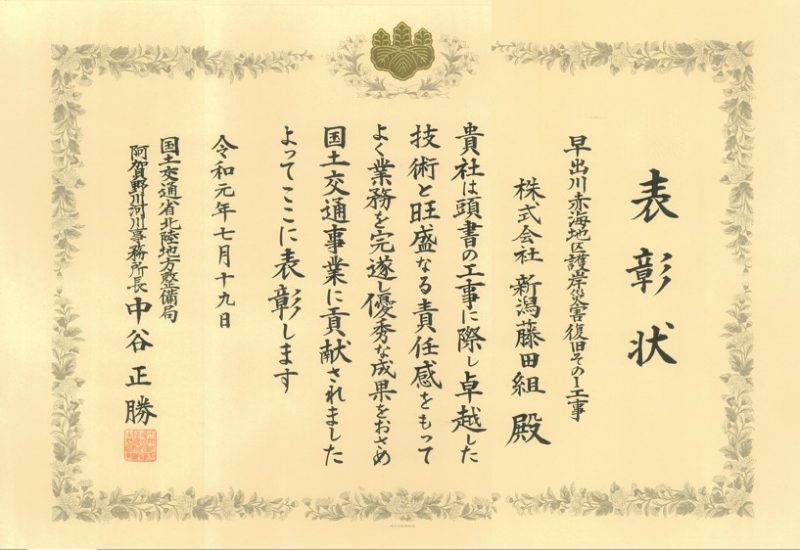 表彰状
早出川赤海地区護岸災害復旧その1工事
株式会社 新潟藤田組 殿
貴社は頭書の工事に際し卓越した
技術と旺盛なる責任感をもって
よく業務を完遂し優秀な成果をおさめ
国土交通事業に貢献されました
よってここに表彰します
令和元年七月十九日
国土交通省北陸地方整備局
阿賀野川河川事務所長 中谷正勝